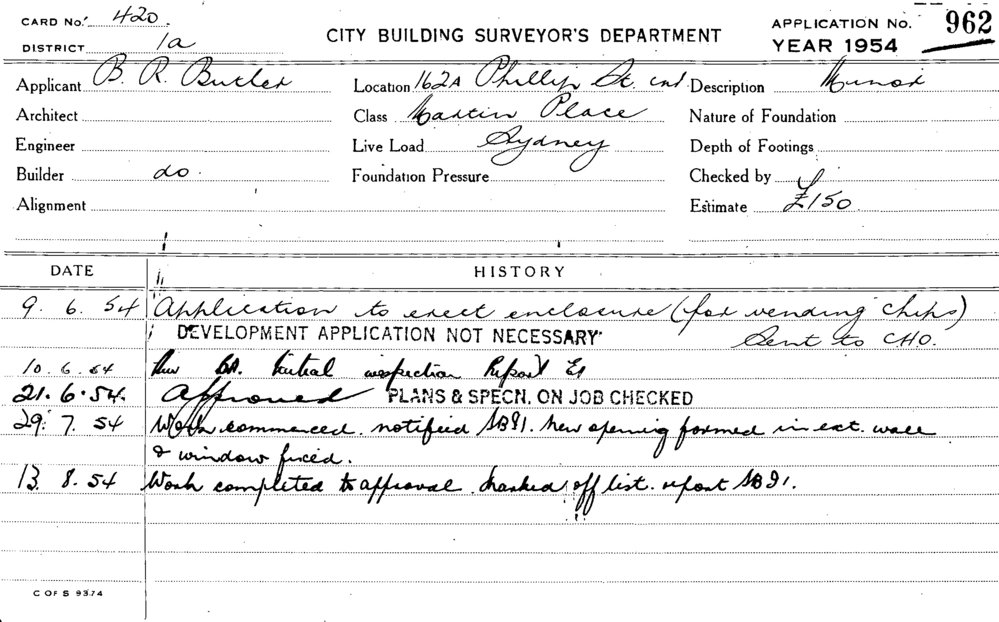 CARD No. 420.
DISTRICT 1a
CITY BUILDING SURVEYOR'S DEPARTMENT
APPLICATION No. 962
YEAR 1954
Applicant B. R. Butler
Location 162A Phillip St. cnr
Description Minor
Architect
Class Martin Place
Nature of Foundation
Engineer
Live Load Sydney
Depth of Footings
Builder do.
Foundation Pressure
Checked by
Alignment
Estimate £150
DATE
HISTORY
9. 6. 54 Application to erect enclosure (for vending chips)
DEVELOPMENT APPLICATION NOT NECESSARY
Sent to CHO.
10. 6. 54 BA. Initial inspection Report
21. 6. 54. Approved PLANS & SPECN. ON JOB CHECKED
29. 7. 54 Work commenced. notified SBI. New opening formed in ext. wall
& window fixed.
13. 8. 54 Work completed to approval. Marked off list. report SBI.
C OF S 93.74